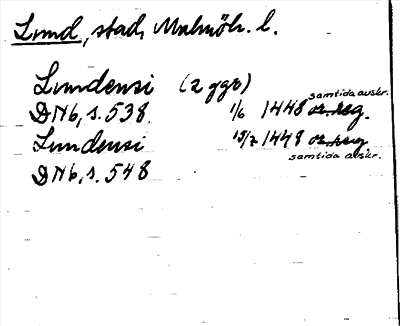 Lund, stad, Malmöh. l.
samtida avskr.
Lundensi (2 ggr)
DN6, s. 538. 1/6 1448 or. reg.
Lundensi 18/7 1449 or. reg.
samtida avskr.
DN6, s. 548